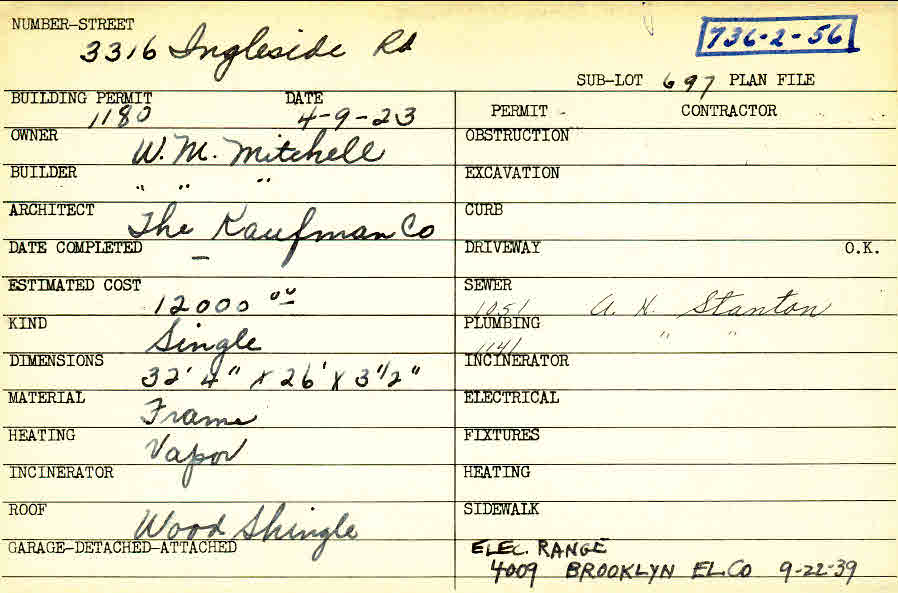 NUMBER-STREET
3316 Ingleside Rd
736-2-56
SUB-LOT 697 PLAN FILE
BUILDING PERMIT DATE
1180 4-9-23
PERMIT - CONTRACTOR
OWNER W. M. Mitchell
OBSTRUCTION
BUILDER " " "
EXCAVATION
ARCHITECT The Kaufman Co
CURB
DATE COMPLETED -
DRIVEWAY O.K.
ESTIMATED COST 12000 00
SEWER
1051 A. H. Stanton
KIND Single
PLUMBING " "
1141
DIMENSIONS 32' 4" x 26' x 3 1/2"
INCINERATOR
MATERIAL Frame
ELECTRICAL
HEATING Vapor
FIXTURES
INCINERATOR
HEATING
ROOF Wood Shingle
SIDEWALK
GARAGE-DETACHED-ATTACHED
ELEC. RANGE
4009 BROOKLYN EL.CO 9-22-39